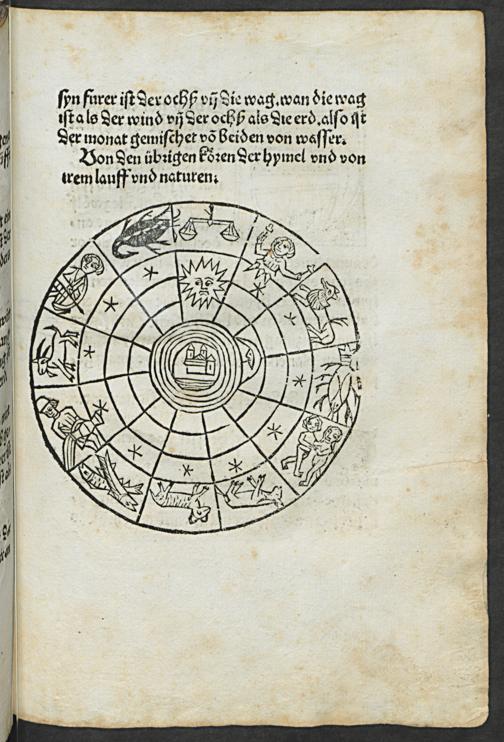 syn furer ist der ochß vñ die wag. wan die wag
ist als der wind vñ der ochß als die erd. also ist
der monat gemischet võ beiden von wasser.
Von den übrigen kören der hymel vnd von
irem lauff vnd naturen.